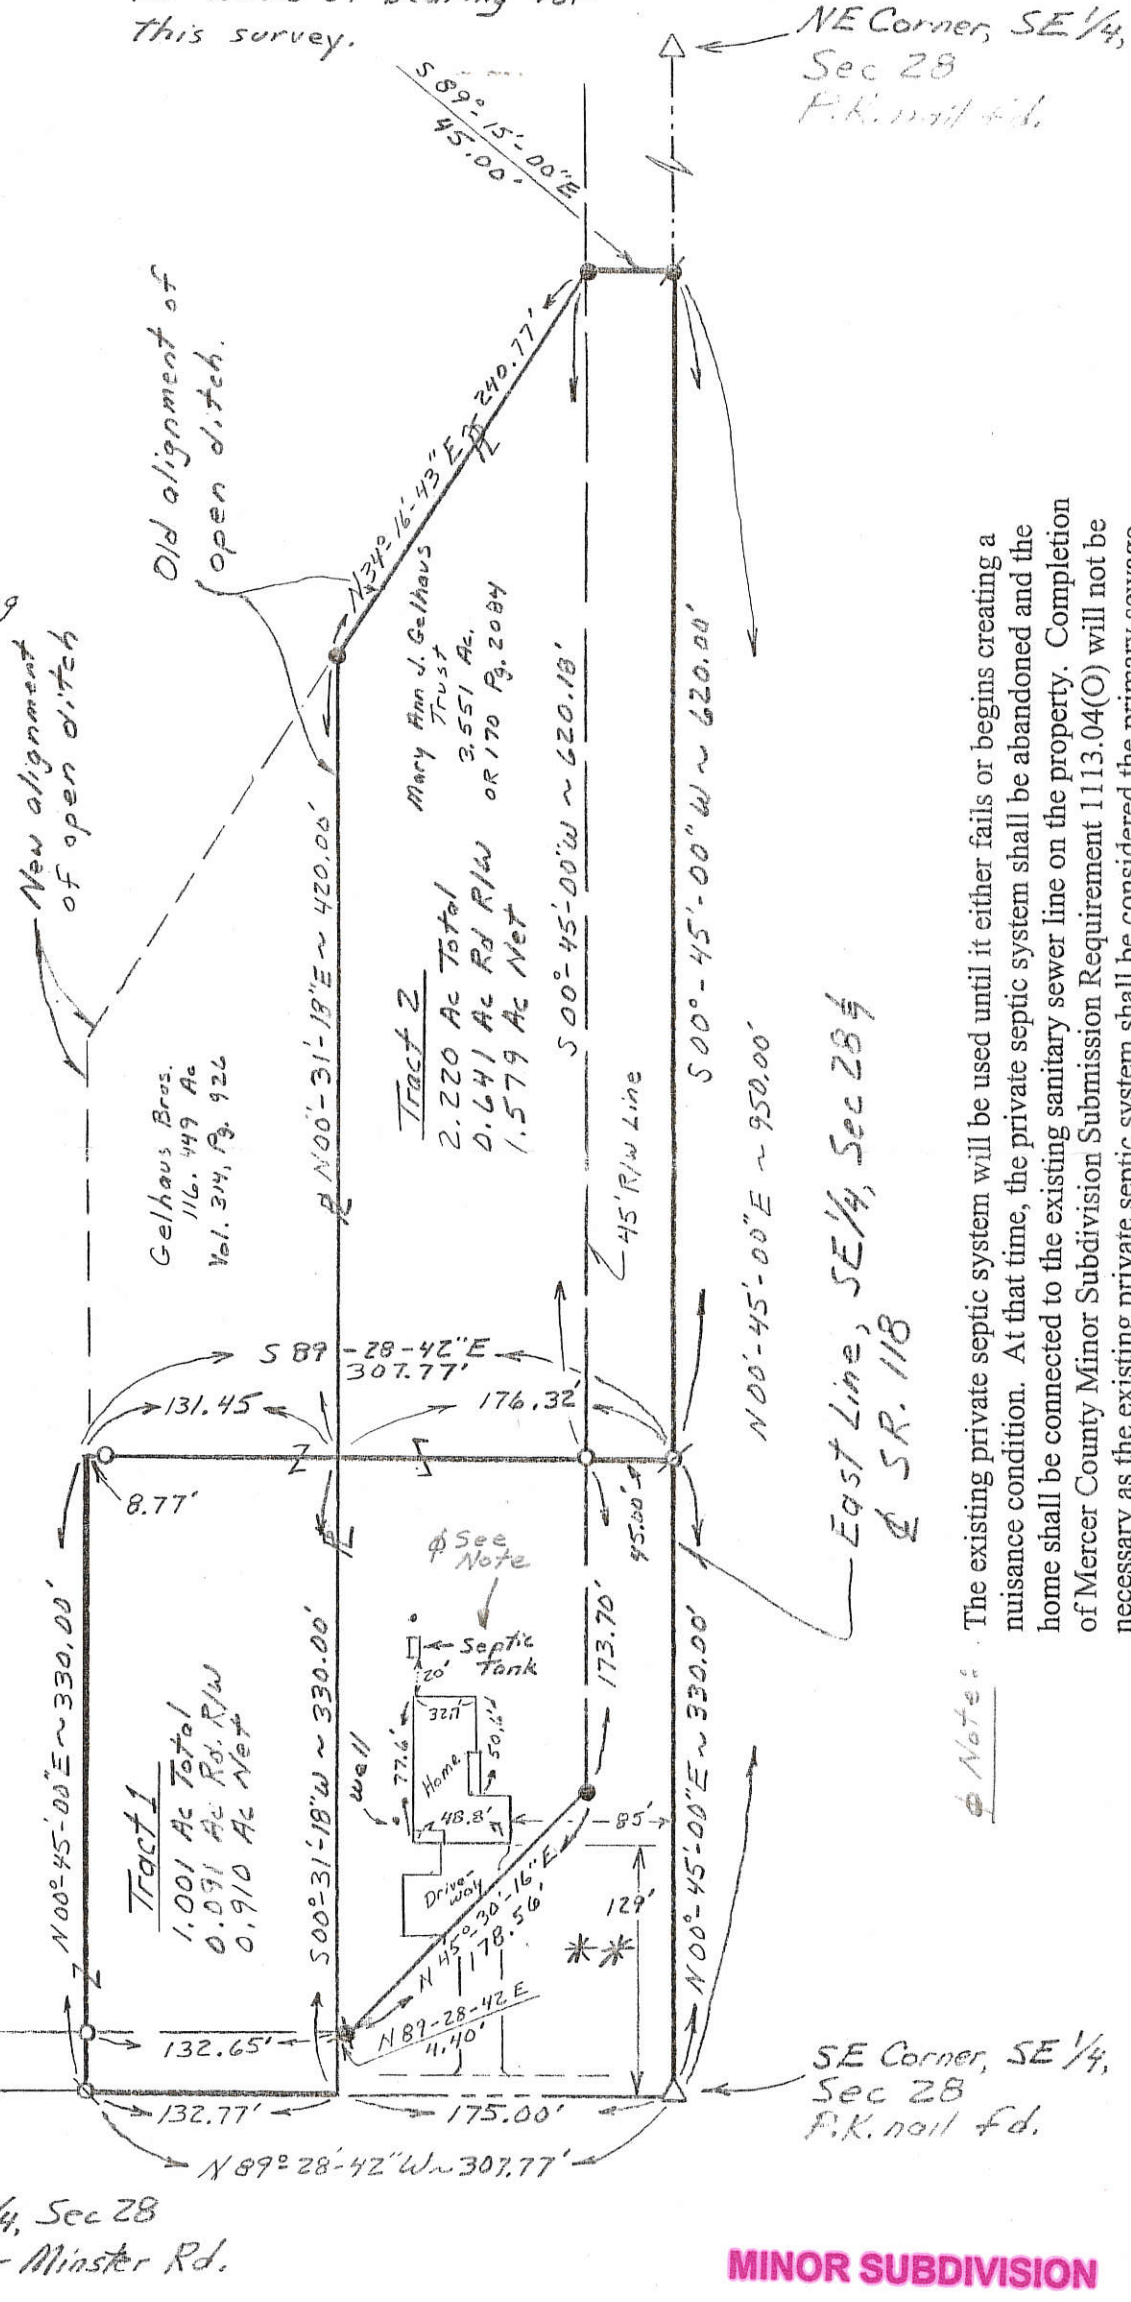 this survey.
NE Corner, SE 1/4,
Sec 28
P.K. nail fd.
S 89°-15'-00"E
45.00'
Old alignment of
open ditch.
New alignment
of open ditch
N34°-16'-43"E ~ 240.77'
Mary Ann J. Gelhaus
Trust
3.551 Ac.
OR 170 Pg. 2084
Gelhaus Bros.
116.449 Ac
Vol. 314, Pg. 926
N00°-31'-18"E ~ 420.00'
Tract 2
2.220 Ac Total
0.641 Ac Rd R/W
1.579 Ac Net
S00°-45'-00"W ~ 620.18'
45' R/W Line
S00°-45'-00"W ~ 620.00'
N00°-45'-00"E ~ 950.00'
East Line, SE 1/4, Sec 28 &
℄ SR. 118
S 89-28-42"E
307.77'
131.45
176.32'
8.77'
45.00'
ϕ See
Note
Septic
Tank
20'
32.7'
77.6'
Home
50.6'
48.8'
Well
Drive-
way
173.70'
85'
129'
**
N00°-45'-00"E ~ 330.00'
Tract 1
1.001 Ac Total
0.091 Ac Rd. R/W
0.910 Ac Net
S00°-31'-18"W ~ 330.00'
N45°-30'-16"E
178.56'
N89-28-42E
4.40'
N00°-45'-00"E ~ 330.00'
132.65'
132.77'
175.00'
N89°28'-42"W ~ 307.77'
SE Corner, SE 1/4,
Sec 28
P.K. nail fd.
ϕ Note:
The existing private septic system will be used until it either fails or begins creating a
nuisance condition. At that time, the private septic system shall be abandoned and the
home shall be connected to the existing sanitary sewer line on the property. Completion
of Mercer County Minor Subdivision Submission Requirement 1113.04(O) will not be
necessary as the existing private septic system shall be considered the primary sewage
Sec 28
Minster Rd.
MINOR SUBDIVISION